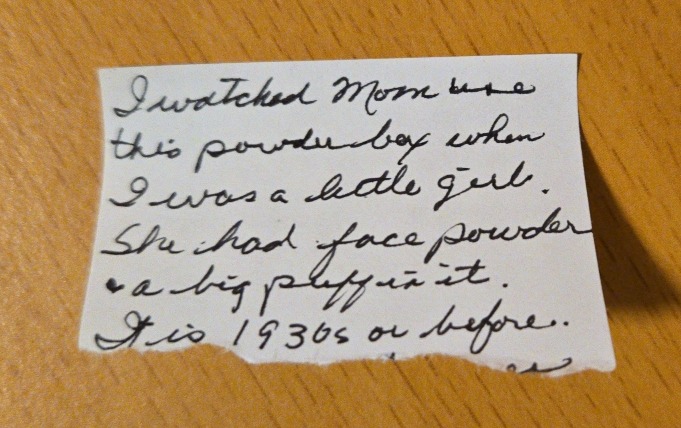 I watched Mom use
this powder box when
I was a little girl.
She had face powder
& a big puff in it.
It is 1930s or before.